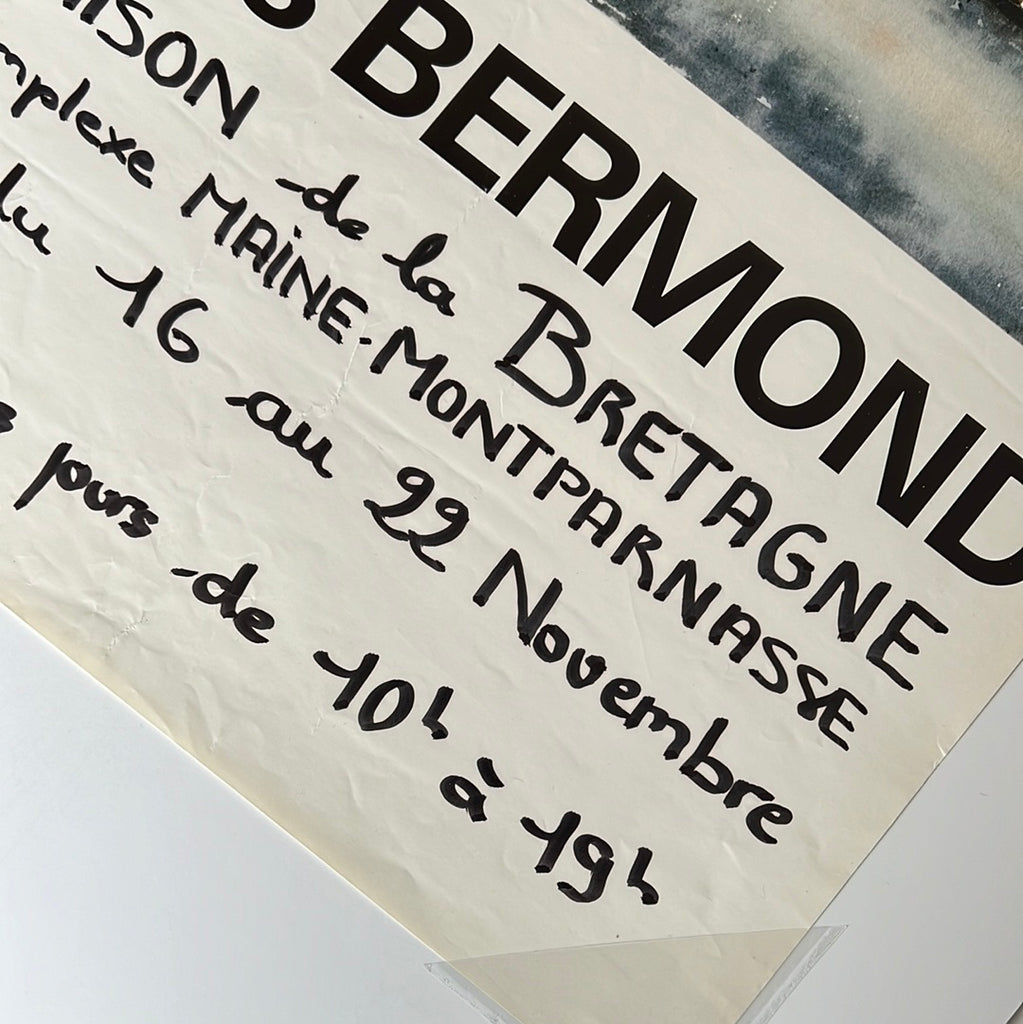 S BERMOND
MAISON de la BRETAGNE
complexe MAINE-MONTPARNASSE
du 16 au 22 Novembre
jours de 10h à 19h